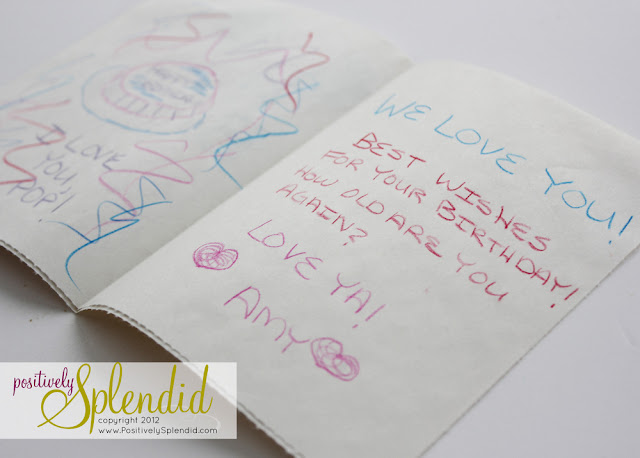 I LOVE
YOU,
POP!
WE LOVE YOU!
BEST WISHES
FOR YOUR BIRTHDAY!
HOW OLD ARE YOU
AGAIN?
LOVE YA!
AMY
positively
Splendid
copyright 2012
www.PositivelySplendid.com